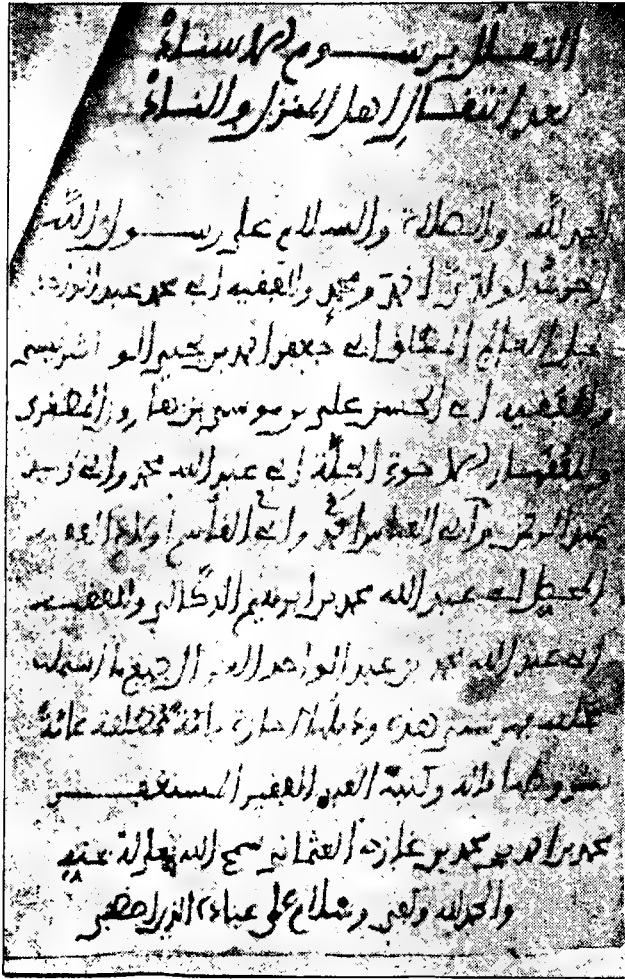 التعلل برسوم الإسناد
بعد انتقال أهل المنزل والناد
الحمد لله والصلاة والسلام على رسول الله
أجزت لولدي أحمد ومحمد والفقيه أبي محمد عبد الواحد
نجل العالم أبي جعفر أحمد بن يحيى الونشريسي
والفقيه أبي الحسن علي بن موسى بن هارون المطغري
والفقهاء الإخوة الجلة أبي عبد الله محمد وأبي زيد
عبد الرحمن وأبي العباس أحمد وأبي القاسم أولاد الفقيه
أبي عبد الله محمد بن إبراهيم الدكالي والفقيه
أبي عبد الله محمد بن عبد الواحد جميع ما اشتملت
عليه فهرستي هذه إجازة تامة مطلقة عامة
بشروطها قاله وكتبه العبد الفقير المستغفر
محمد بن أحمد بن محمد بن غازي العثماني سمح الله تعالى له بمنه
والحمد لله وكفى وسلام على عباده الذين اصطفى